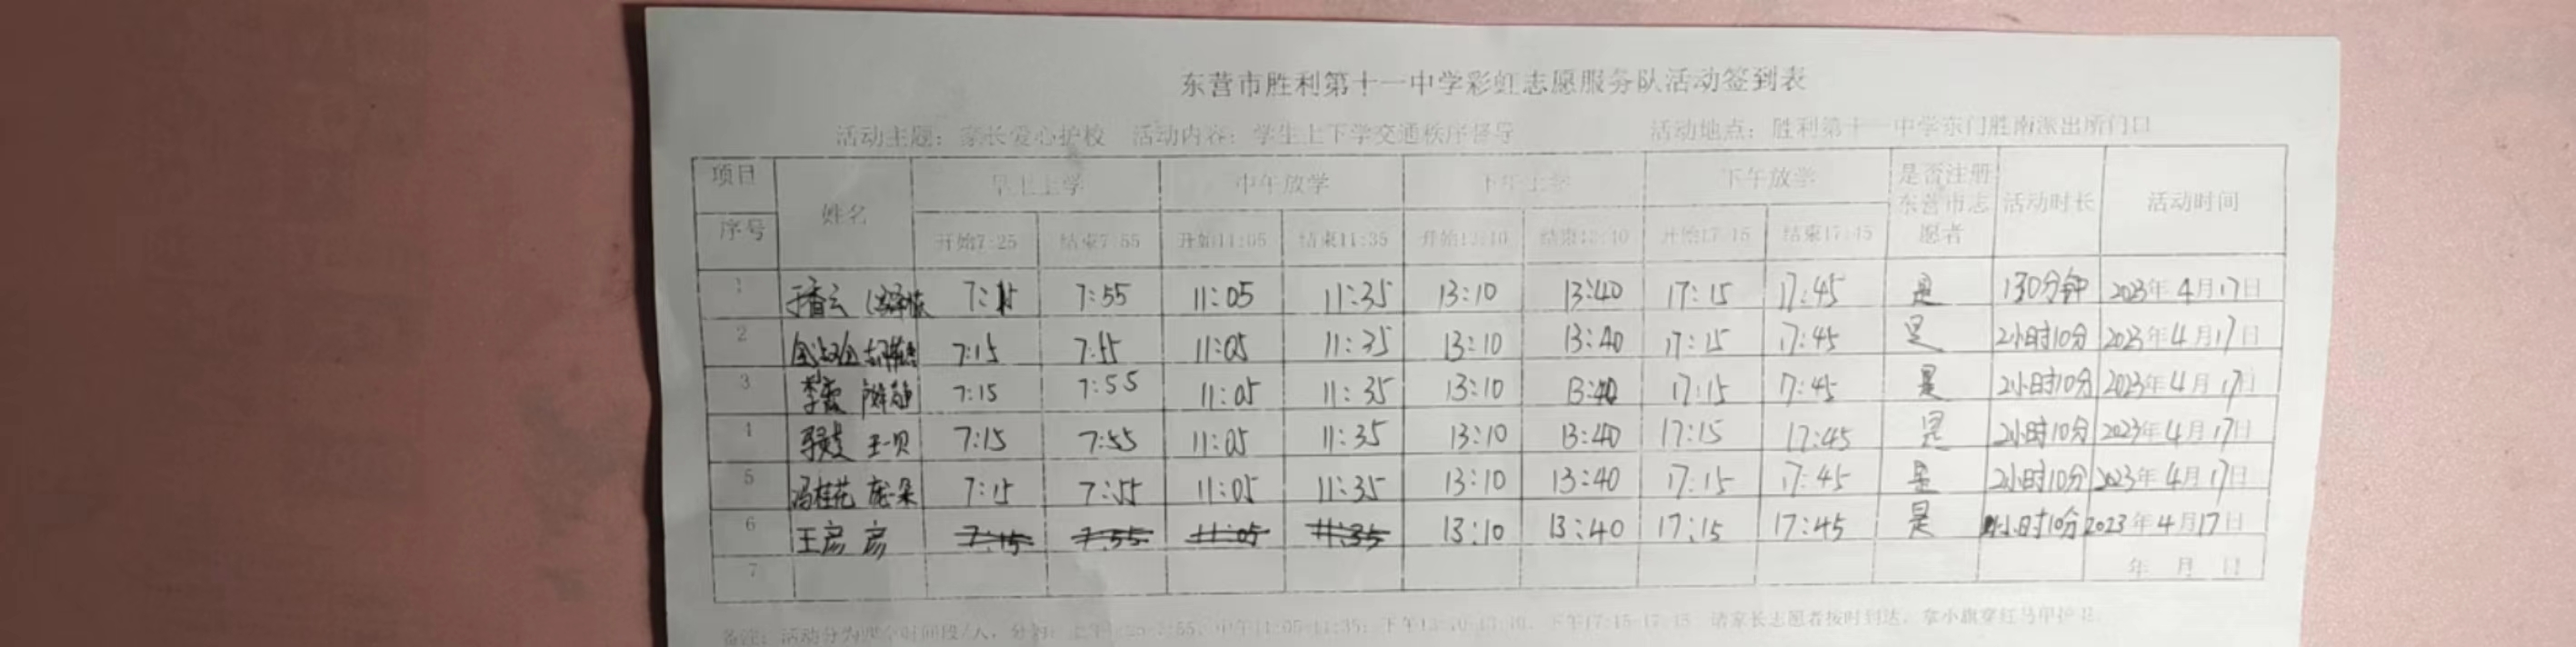 东营市胜利第十一中学彩虹志愿服务队活动签到表
活动主题：家长爱心护校 活动内容：学生上下学交通秩序督导 活动地点：胜利第十一中学东门胜南派出所门口
项目 姓名 早上上学 中午放学 下午上学 下午放学 是否注册东营市志愿者 活动时长 活动时间
序号 开始7:25 结束7:55 开始11:05 结束11:35 开始13:10 结束13:40 开始17:15 结束17:45
1 于香云 7:15 7:55 11:05 11:35 13:10 13:40 17:15 17:45 是 130分钟 2023年4月17日
2 7:15 7:55 11:05 11:35 13:10 13:40 17:15 17:45 是 2小时10分 2023年4月17日
3 李霞 7:15 7:55 11:05 11:35 13:10 13:40 17:15 17:45 是 2小时10分 2023年4月17日
4 王一贝 7:15 7:55 11:05 11:35 13:10 13:40 17:15 17:45 是 2小时10分 2023年4月17日
5 冯桂花 7:15 7:55 11:05 11:35 13:10 13:40 17:15 17:45 是 2小时10分 2023年4月17日
6 王彦彦 7:15 7:55 11:05 11:35 13:10 13:40 17:15 17:45 是 小时10分 2023年4月17日
7 年 月 日
备注：活动分为四个时间段/人，分别：上午7:25-7:55，中午11:05-11:35；下午13:10-13:40，下午17:15-17:45 请家长志愿者按时到达，拿小旗穿红马甲护